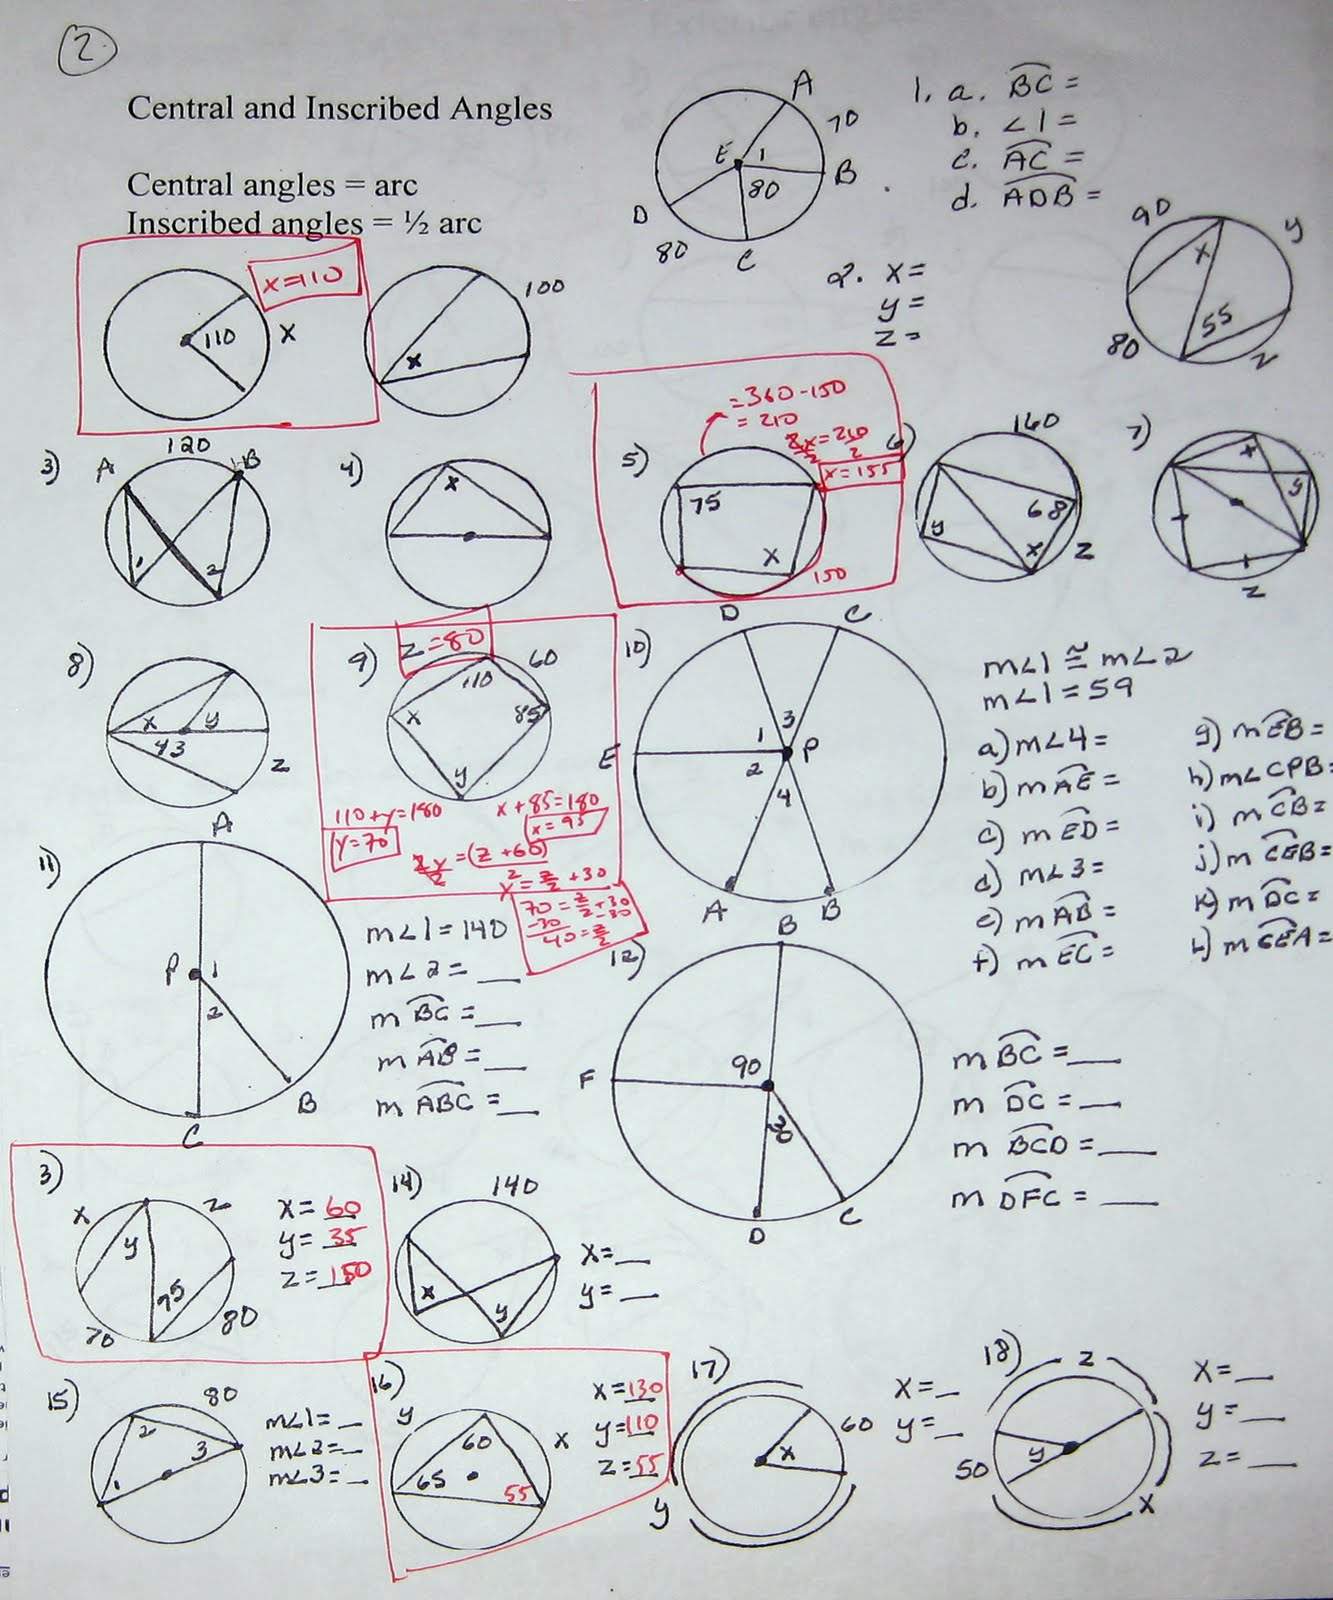 2
Central and Inscribed Angles
Central angles = arc
Inscribed angles = ½ arc
A
70
E 1
B
80
D
80
C
1. a. BC =
b. ∠1 =
c. AC =
d. ADB =
2. x =
y =
z =
90
y
x
55
80
z
x=110
110
x
100
x
3)
120
A
B
1
2
4)
x
5)
=360-150
=210
2x=210
2 2
x=155
75
x
150
6)
160
68
y
x
z
7)
x
y
z
8)
x
y
43
z
9)
z=80
60
110
x
85
y
110+y=180
y=70
x+85=180
x=95
2y=(z+60)
2 2
y=z/2+30
70=z/2+30
-30 -30
40=z/2
10)
D
C
1
3
E
P
2
4
A
B
m∠1 ≅ m∠2
m∠1 = 59
a) m∠4 =
b) m AE =
c) m ED =
d) m∠3 =
e) m AB =
f) m EC =
g) m EB =
h) m∠CPB=
i) m CB =
j) m CEB =
k) m DC =
L) m CEA =
11)
A
P
1
2
B
C
m∠1 = 140
m∠2 = __
m BC = __
m AB = __
m ABC = __
12)
B
90
F
D
C
m BC = __
m DC = __
m BCD = __
m DFC = __
3)
x
z
y
75
70
80
x = 60
y = 35
z = 150
14)
140
x
y
x= __
y= __
15)
80
2
3
1
m∠1 = __
m∠2 = __
m∠3 = __
16)
y
60
x
65
55
x=130
y=110
z=55
17)
60
x
y
x= __
y= __
18)
z
y
50
x
x = __
y = __
z = __